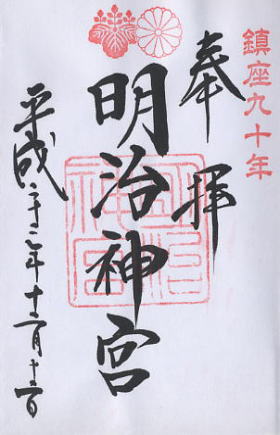 鎮座九十年
奉拝
明治神宮
明治神宮
平成二十二年十二月十二日